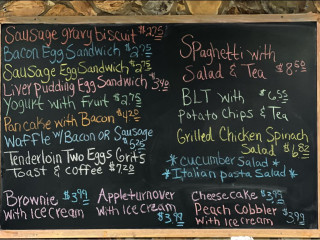 Sausage gravy biscuit $2.75!
Bacon Egg Sandwich $2.75
Sausage Egg Sandwich $2.75
Liver pudding Egg Sandwich $3.40
Yogurt with Fruit $2.75
Pancake with Bacon $4.20
Waffle w/Bacon OR Sausage
$6.25
Tenderloin Two Eggs Grits
Toast & coffee $7.20
Brownie $3.99
with Ice cream
Apple turnover
with Ice cream
$3.99
Spaghetti with
Salad & Tea $8.50
BLT with $6.55
Potato Chips & Tea
Grilled Chicken Spinach
Salad $6.82
*Cucumber Salad*
*Italian pasta Salad*
Cheesecake $3.99
Peach Cobbler
with Ice cream $3.99